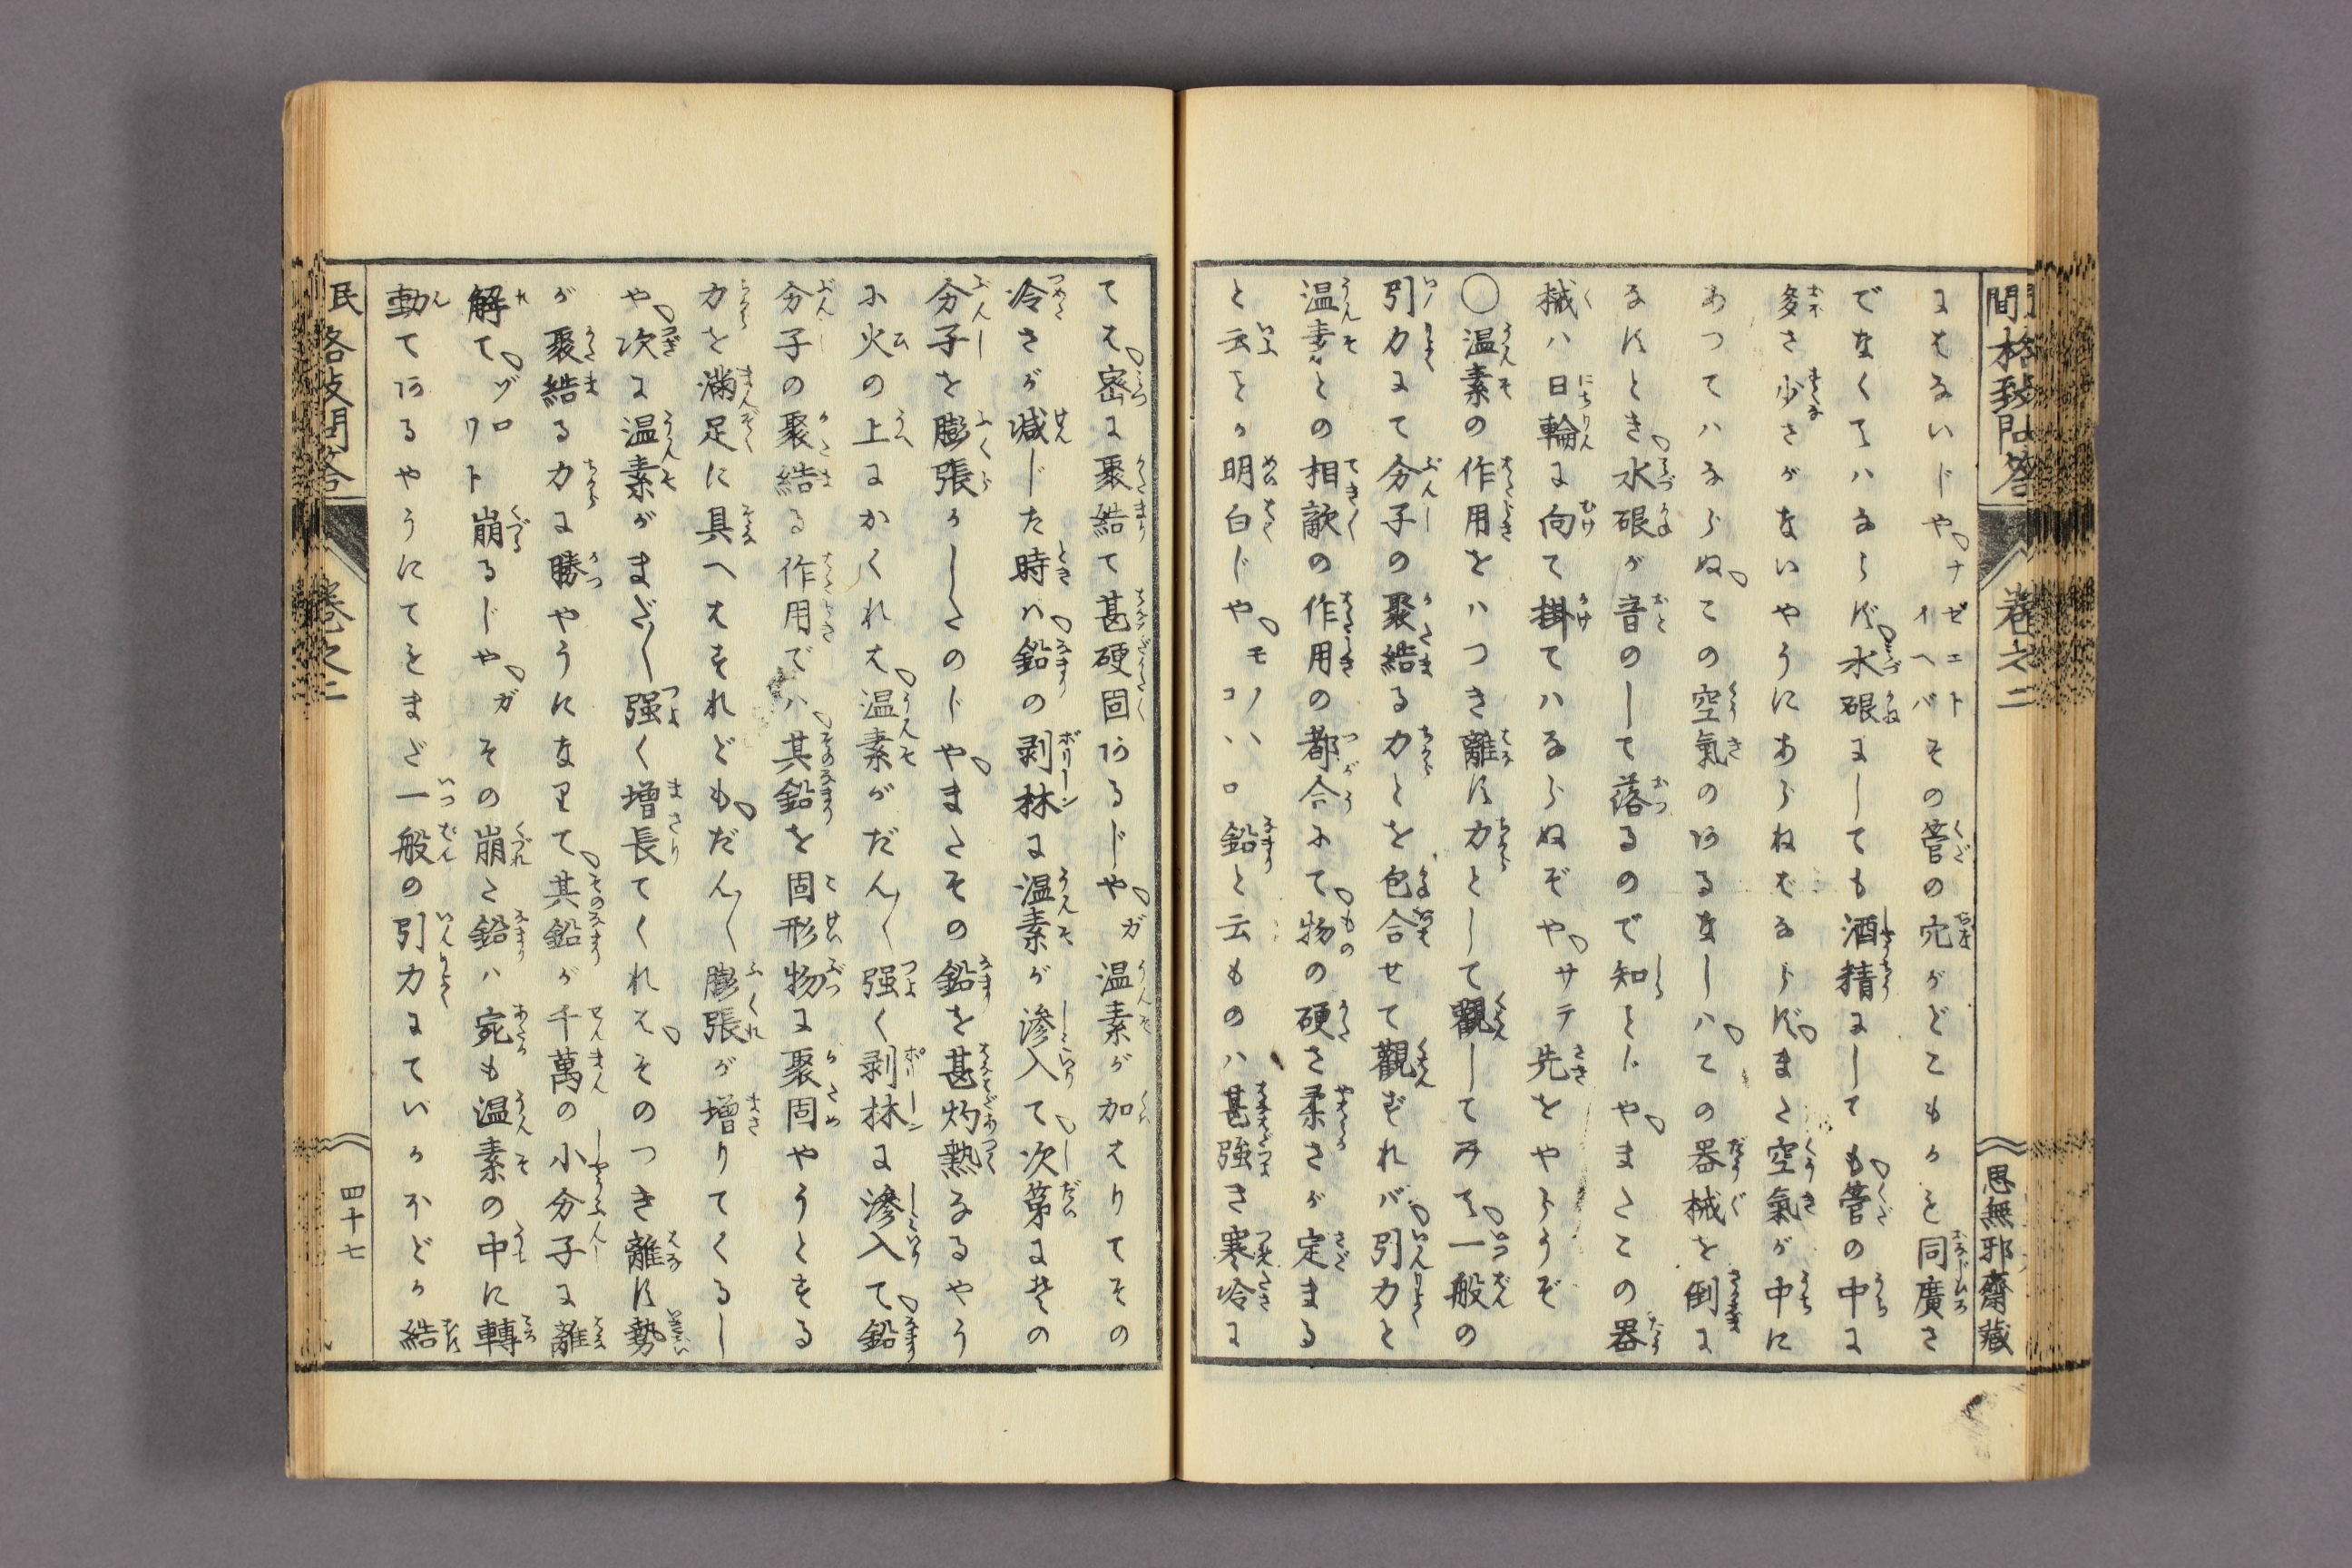 民間格致問答 卷之二 思無邪齋藏
にはないじや、ナゼエトイヘバその管の穴がどこもかも同廣さ
でなくてハならぬ、水銀にしても酒精にしても、管の中に
多さ少さがないやうにあらねばならぬ、また空氣が中に
あつてハならぬ、この空氣のあるなしハ、この器械を倒に
なすとき、水銀が音のして落るので知とじや、またこの器
械ハ日輪に向て掛てハならぬぞや、サテ先をやらうぞ
〇温素の作用をハつき離す力として觀してみて、一般の
引力にて分子の聚結る力とを包合せて觀ずれバ、引力と
温素との相敵の作用の都合にて、物の硬さ柔さが定まる
と云とか明白じや、モノハコヽロ鉛と云ものハ甚強き寒冷に
てハ、密に聚結て甚硬固あるじや、ガ温素が加はりてその
冷さが減じた時ハ、鉛の剥林に温素が滲入て、次第に其の
分子を膨張かしたのじや、またその鉛を甚灼熱なるやう
に火の上にかくれハ、温素がだん〱強く剥林に滲入て、鉛
分子の聚結る作用でハ、其鉛を固形物に聚固やうとする
力を滿足に具へはすれども、だん〱膨張が増りてくるし
や、次に温素がまだ〱強く増長てくれハ、そのつき離す勢
が聚結る力に勝やうになりて、其鉛が千萬の小分子に離
解て、ゾロワト崩るじや、ガその崩た鉛ハ宛も温素の中に轉
動てあるやうにてもまだ一般の引力にていかほどか結
民間格致問答 卷之二 四十七